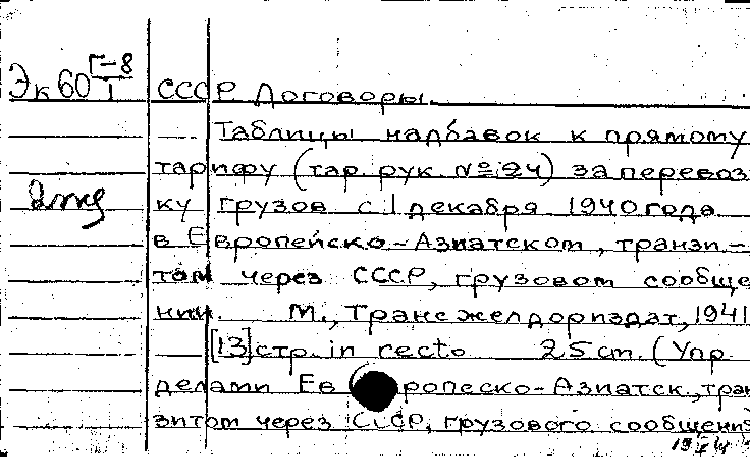 Эк60 Г-8
I
СССР. Договоры.
Таблицы надбавок к прямому
тарифу (тар. рук. № 24) за перевоз
ку грузов с 1 декабря 1940 года
в Европейско-Азиатском, транзи-
том через СССР, грузовом сообще
нии. М., Трансжелдориздат, 1941
[13] стр. in recto 25 cm. (Упр
делами Европеско-Азиатск., тран
зитом через СССР, грузового сообщения